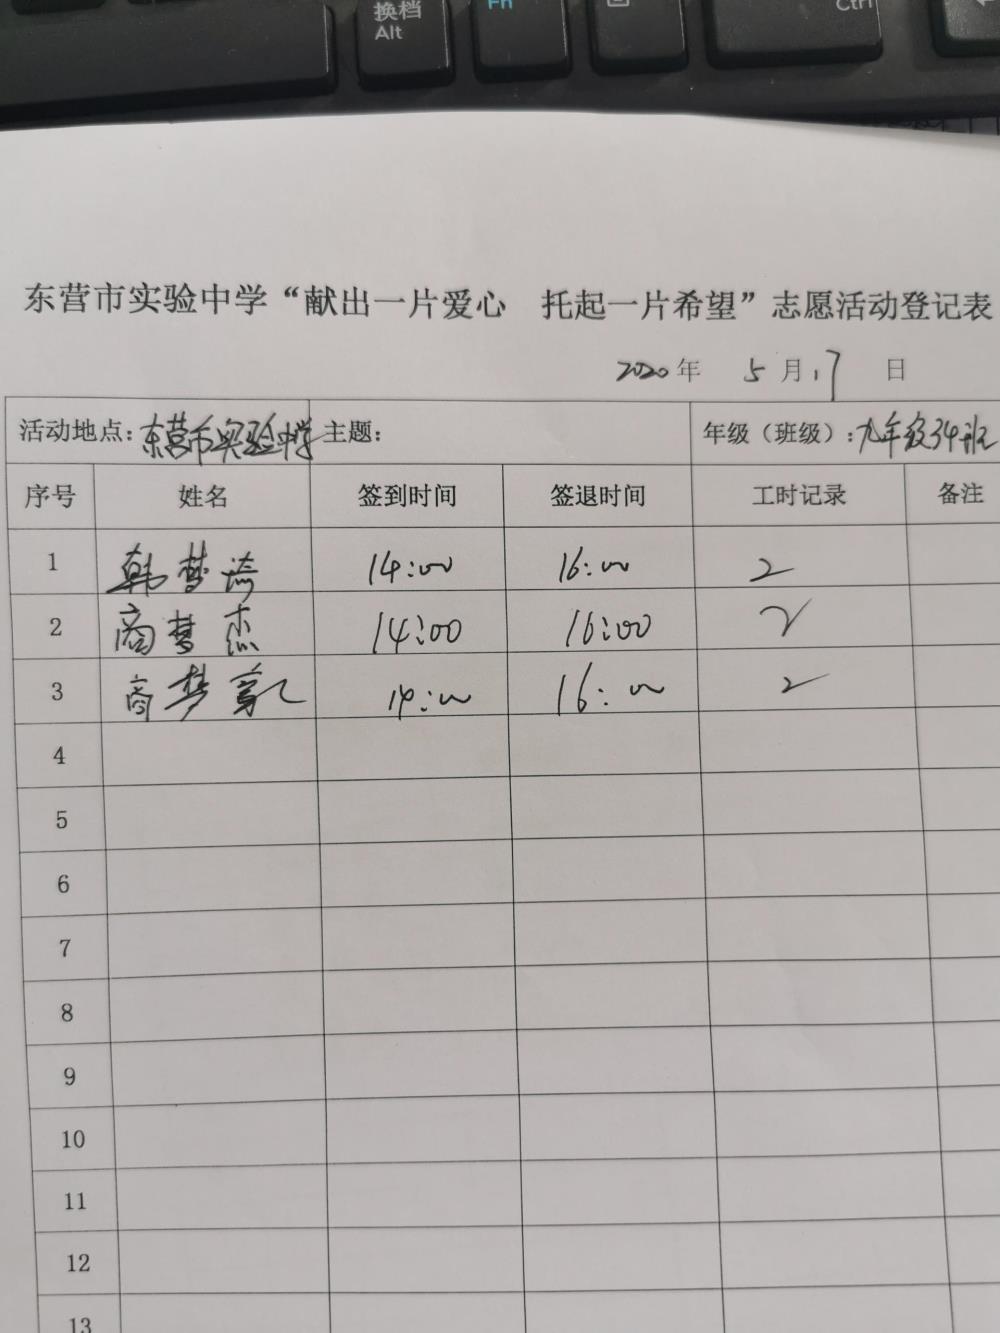 换档
Alt
Fn
Ctrl
东营市实验中学“献出一片爱心 托起一片希望”志愿活动登记表
2020年 5月17日
活动地点：东营市实验中学 主题： 年级（班级）：九年级34班
序号 姓名 签到时间 签退时间 工时记录 备注
1 韩梦 14:00 16:00 2
2 商梦杰 14:00 16:00 2
3 商梦 14:00 16:00 2
4
5
6
7
8
9
10
11
12
13